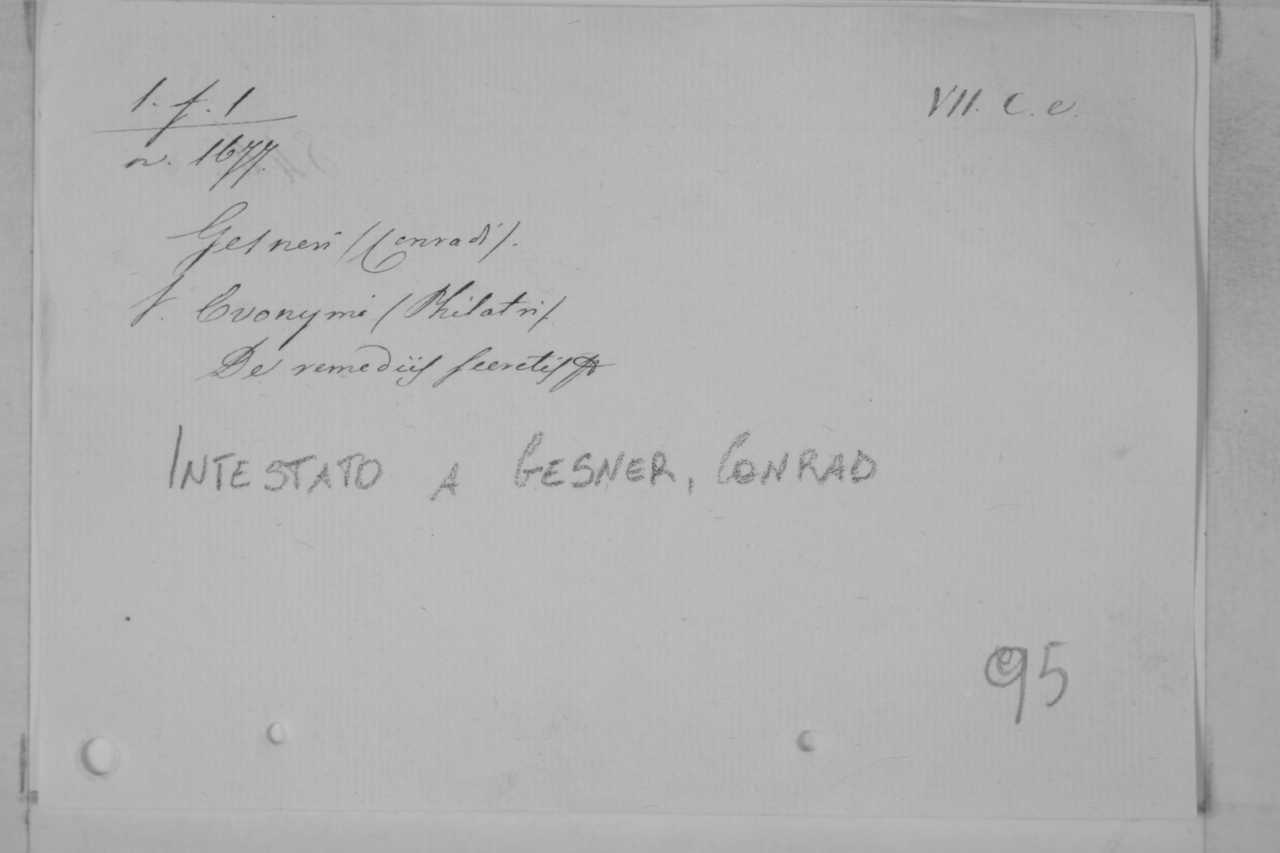 1. f. 1
VII. C. e.
n. 1677.
Gesneri (Conradi).
V. Evonymi (Philatri).
De remediis secretis
INTESTATO A GESNER, CONRAD
95